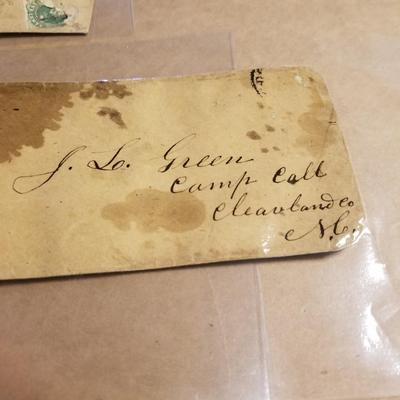 J. L. Green
Camp Call
Cleavland Co
N.C.